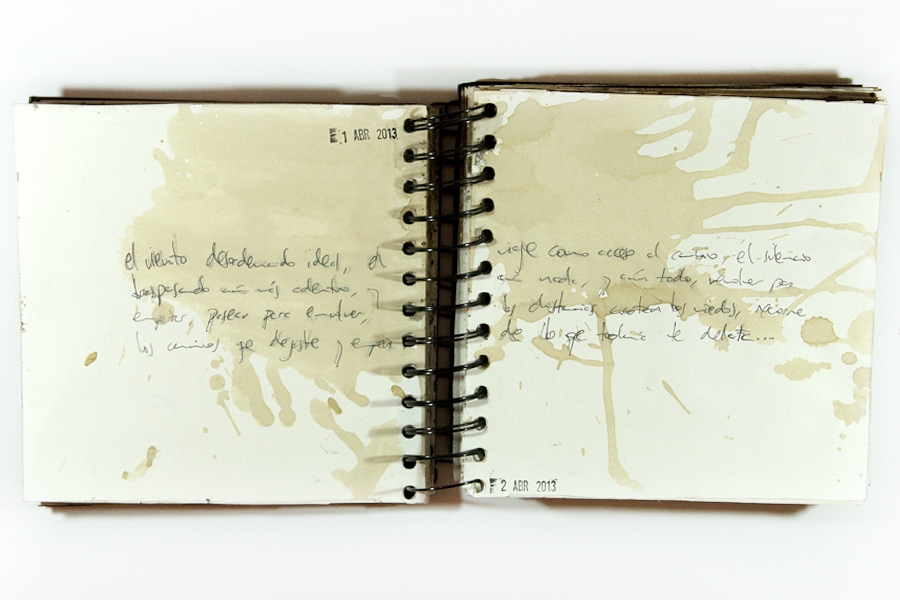 E 1 ABR 2013
el viento desordenando ideas, el
traspasando aún más adentro, y
pasear para envolver,
los caminos que dejaste y
viaje como acceso al camino, el silencio
aún nada, y aún todo, volver
las distancias los miedos,
de lo que todavía te delata...
E 2 ABR 2013